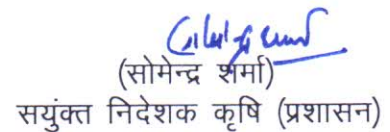 (सोमेन्द्र शर्मा)
सयुंक्त निदेशक कृषि (प्रशासन)